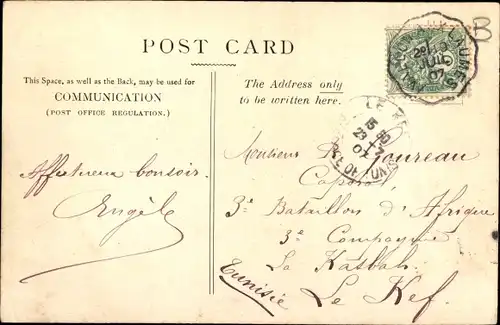 B
POST CARD
This Space, as well as the Back, may be used for
COMMUNICATION
(POST OFFICE REGULATION.)
The Address only
to be written here.
LAUMES
JUIL
07
LE KEF
15 30
23 -7
07
Affectueux bonsoir.
Engèle
Monsieur B. Goureau
Caporal
3e Bataillon d'Afrique
3e Compagnie
La Kasbah
Le Kef
Tunisie